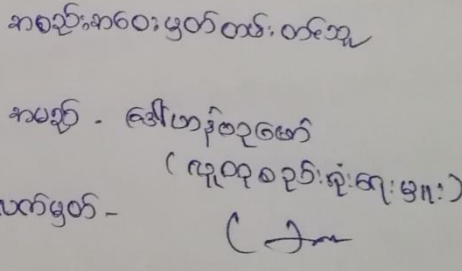 အစည်းအဝေးမှတ်တမ်းတင်သူ
အမည် - ဒေါ်ဟာနီဗဒုဇော်
(လူထုစည်းရုံးရေးမှူး)
လက်မှတ် -